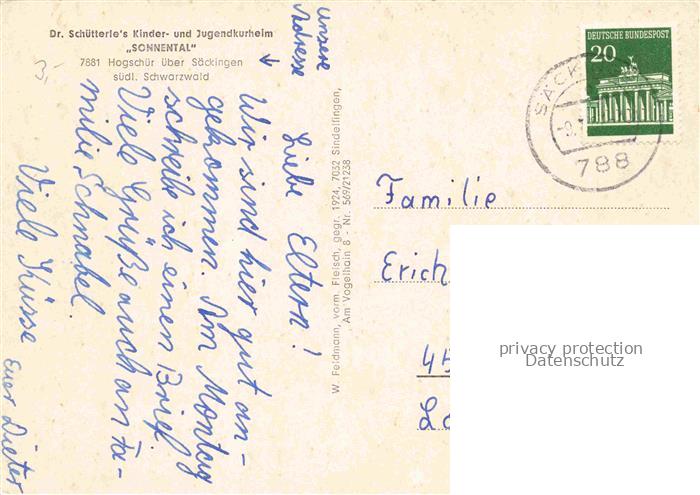 Dr. Schütterle's Kinder- und Jugendkurheim
„SONNENTAL"
7881 Hogschür über Säckingen
südl. Schwarzwald
3,-
unsere
Adresse
Liebe Eltern!
Wir sind hier gut an-
gekommen. Am Montag
schreibe ich einen Brief.
Viele Grüße auch an Fa-
milie Schnabel.
Viele Küsse
Euer Dieter
W. Feldmann, vorm. Fleisch, gegr. 1924, 7032 Sindelfingen,
Am Vogelhain 8 - Nr. 569/21238
DEUTSCHE BUNDESPOST
20
SÄCK
788
Familie
Erich
45
privacy protection
Datenschutz